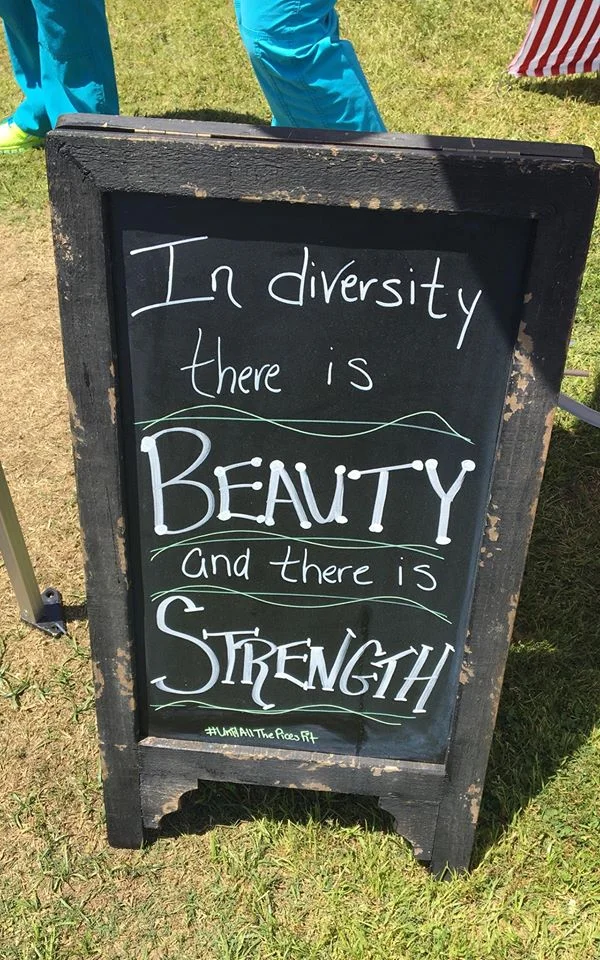 In diversity
there is
BEAUTY
and there is
STRENGTH
#UntilAllThePicesFit